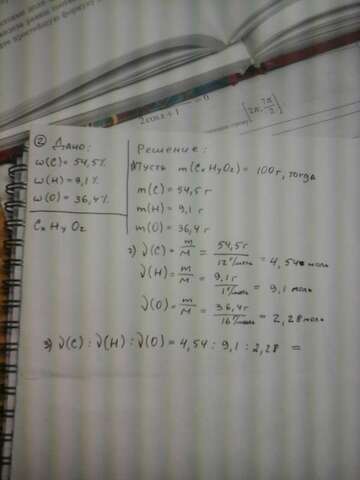 2cosx+1 = 0
[2π, 7π/2]
② Дано:
ω(C) = 54,5%
ω(H) = 9,1%
ω(O) = 36,4%
CxHyOz
Решение:
1) Пусть m(CxHyOz) = 100г, тогда
m(C) = 54,5г
m(H) = 9,1г
m(O) = 36,4г
2) ν(C) = m/M = 54,5г / 12г/моль = 4,54 моль
ν(H) = m/M = 9,1г / 1г/моль = 9,1 моль
ν(O) = m/M = 36,4г / 16г/моль = 2,28 моль
3) ν(C) : ν(H) : ν(O) = 4,54 : 9,1 : 2,28 =